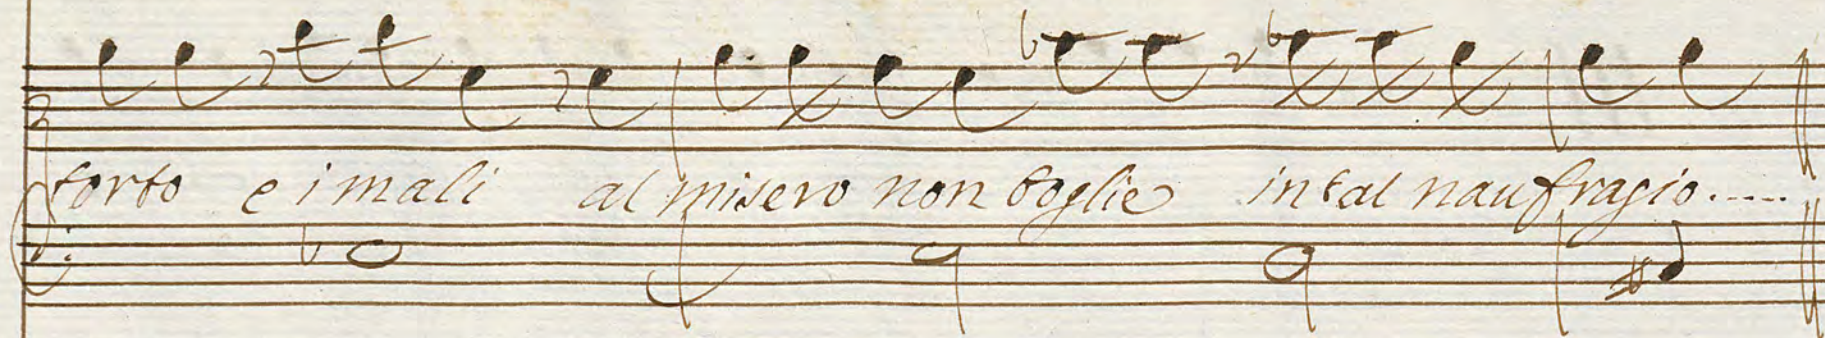 torto e i mali al misero non toglie in tal naufragio.....